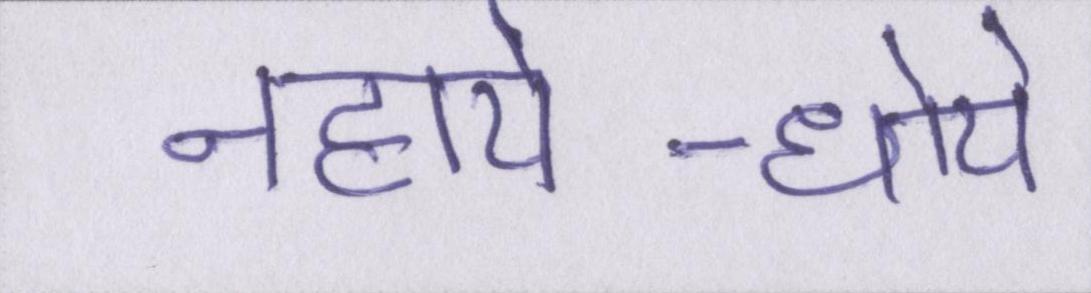 नहाये -धोये